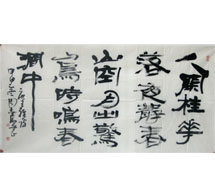 人閒桂華
落夜靜春
山空月出驚
山鳥時鳴春
澗中